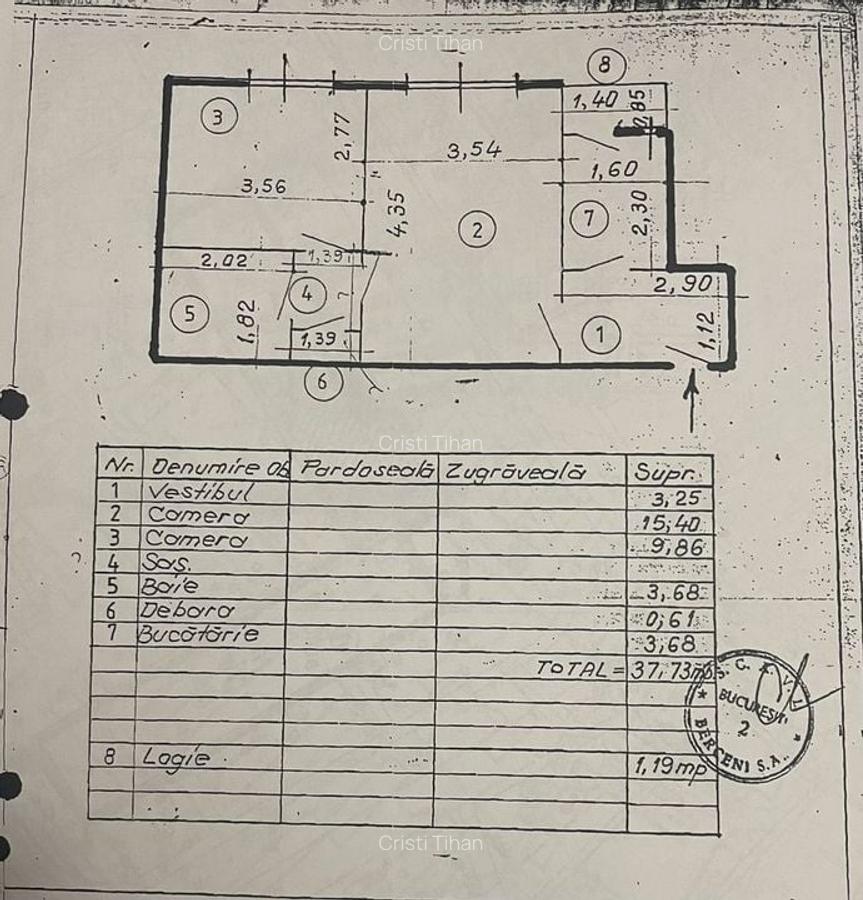 Cristi Tihan
8
3
1,40
0,85
2,77
3,54
1,60
3,56
4,35
2
7
2,30
2,02
1,39
2,90
5
1,82
4
1
1,12
1,39
6
Cristi Tihan
Nr. Denumire ob Pardoseală Zugrăveală Supr.
1 Vestibul 3,25
2 Camera 15,40
3 Camera 9,86
4 Sas.
5 Baie 3,68
6 Debara 0,61
7 Bucătărie 3,68
TOTAL = 37,73mp
BUCUREȘTI
2
BERCENI S.A.
8 Logie 1,19mp
Cristi Tihan